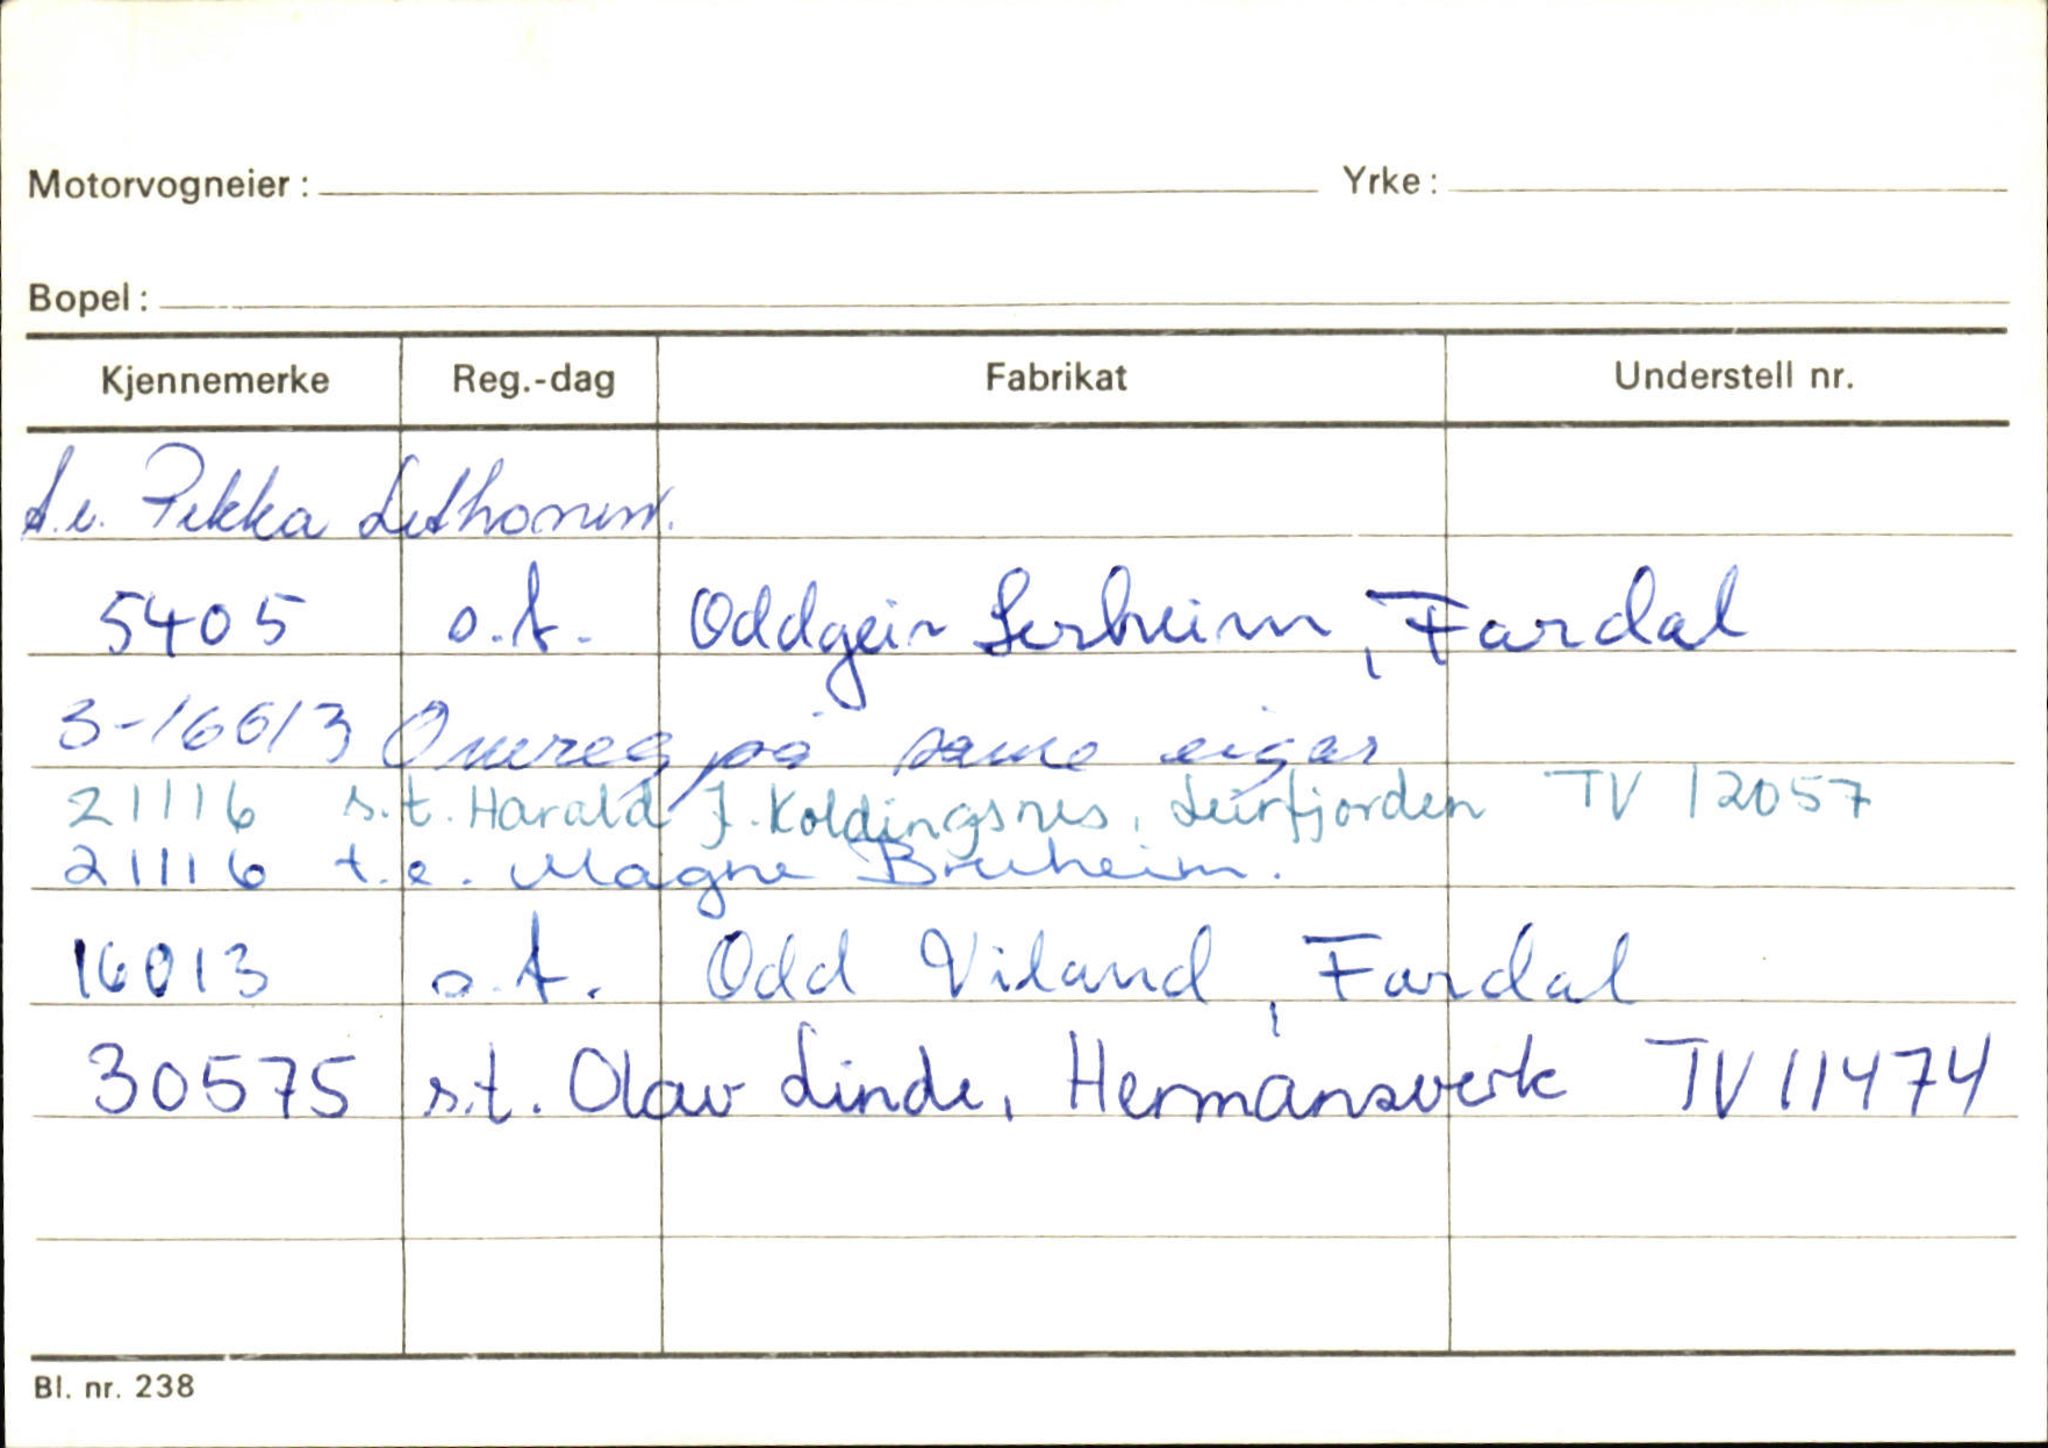 Motorvogneier: Yrke:
Bopel:
Kjennemerke Reg.-dag Fabrikat Understell nr.
t.e. Pekka Lethonen.
5405 s.t. Oddgeir Lerheim, Fardal
3-16013 Omreg på same eigar
21116 s.t. Harald J. Koldingsnes, Leirfjorden TV 12057
21116 t.e. Magne Bruheim.
16013 s.t. Odd Viland, Fardal
30575 s.t. Olav Linde, Hermansverk TV 11474
Bl. nr. 238